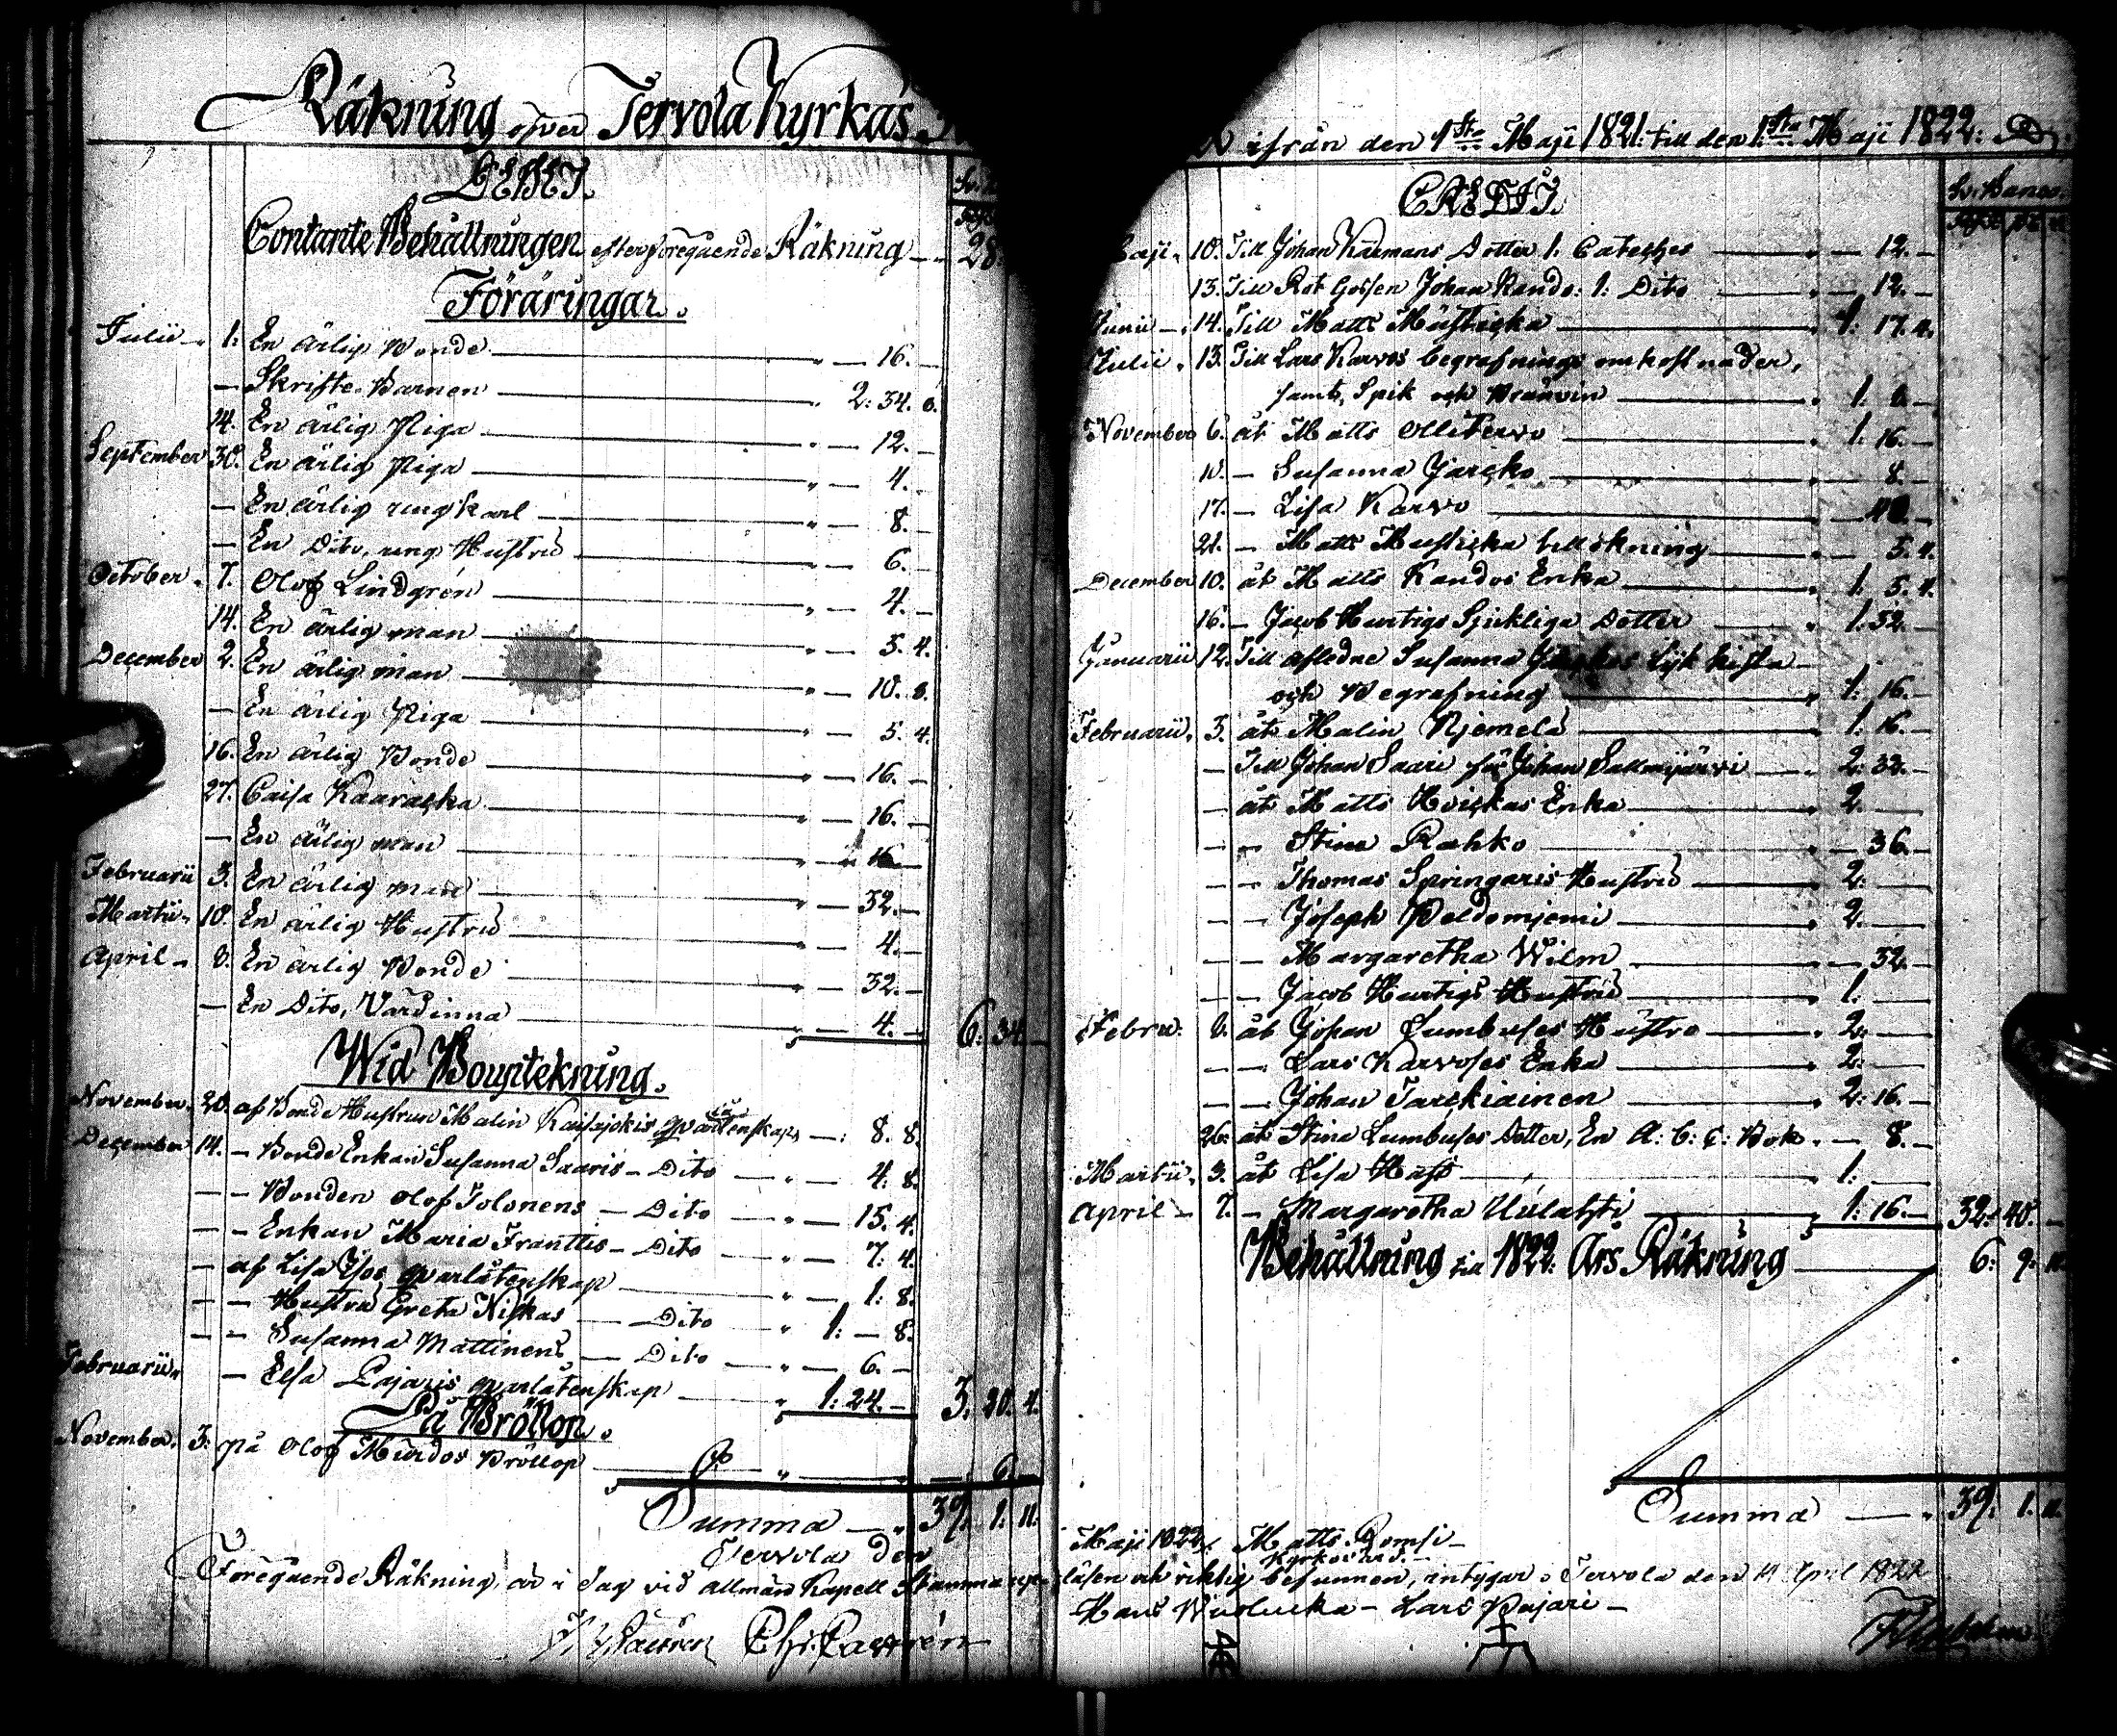 Räkning öfver Tervola Kyrkas
DEBET.
Contante Behållningen efter föregående Räkning — 28
Föräringar.
Julii 1. En ärlig Bonde — 16. —
— Skrifte Barnen 2: 34. 8.
14. En ärlig Piga — 12. —
September 30. En ärlig Piga — 4. —
— En ärlig ung karl — 8. —
— En Dito, ung Hustru — 6. —
October 7. Olof Lindgrén — 4. —
14. En ärlig man — 5. 4.
December 2. En ärlig man — 10. 8.
— En ärlig Piga — 5. 4.
16. En ärlig Bonde — 16. —
27. Caisa Kaaracka — 16. —
— En ärlig man — 16 —
Februarii 3. En ärlig man — 32. —
Martii 10. En ärlig Hustru — 4. —
April 8. En ärlig Bonde — 32. —
— En Dito, Värdinna — 4. — 6: 34 —
Wid Bouptekning.
November 20. af Bonde Hustrun Malin Kaisajokis qvarlåtenskap — 8. 8.
December 14. — Bonde Enkan Susanna Saaris — Dito — 4: 8.
— — Bonden Olof Tolonens — Dito — 15. 4.
— — Enkan Maria Franttis — Dito — 7: 4.
— af Lisa qvarlåtenskap — 1: 8.
— — Hustru Greta Niskas — Dito 1: — 8.
— — Susanna Mattinens — Dito — 6. —
Februarii — Elsa Pajaris qvarlåtenskap 1: 24. — 3. 20. 4.
På Bröllop.
November 3. på Olof Murdos Bröllop — 6
Summa — 39. 1. 11.
Tervola den
Föregående Räkning, är i dag vid allmän Kapell Stämma
ifrån den 1sta Maji 1821: till den 1sta Maji 1822:
CREDIT.
Sv. Banco
Maji 10. Till Johan Kädmans Dotter 1. Cateches — 12. —
13. Till Rot Gossen Johan Kando: 1: Dito — 12. —
Junii 14. Till Matts Musticka 1: 17. 4.
Julii 13. Till Lars Karvos begrafnings omkostnader,
samt, Spik och Bränvin 1: 8 —
November 6. åt Matts Ollitervo 1: 16. —
10. — Susanna Jarcko — 8. —
17. — Lisa Karvo — 40. —
21. — Matts Musticka tillökning — 5. 4.
December 10. åt Matts Kandos Enka 1: 5. 4.
16. — Jacob Hurtigs Sjukliga Dotter 1: 32. —
Januarii 12. Till afledne Susanna Lijk kista
och Begrafning 1: 16. —
Februarii 3. åt Malin Njemelä 1: 16. —
— Till Johan Saari för Johan Sallmijärvi 2: 32. —
— åt Matts Hvickas Enka 2: —
— — Stina Rahko — 36. —
— — Thomas Springaris Hustru 2: —
— — Joseph Peldomjemi 2: —
— — Margaretha Wilm — 32. —
— — Jacob Hurtigs Hustru 1: —
Febru: 8. åt Johan Lumbuses Hustro 2: —
— — Lars Karvoses Enka 2: —
— — Johan Tarckiainen 2: 16. —
26. åt Stina Lumbuses Dotter, En A: B: C: Bok — 8. —
Martii 3. åt Lisa Hast 1: —
April 7. — Margaretha Uulahti 1: 16. — 32: 40. —
Behållning till 1822: Års Räkning 6: 9: 11
Summa — 39: 1. 11.
Maji 1822. Matts Romsi —
Kyrkovärd. —
läsen och riktig befunnen, intygar. Tervola den 14 April 1822
Hans Wuolucka — Lars Pajari —